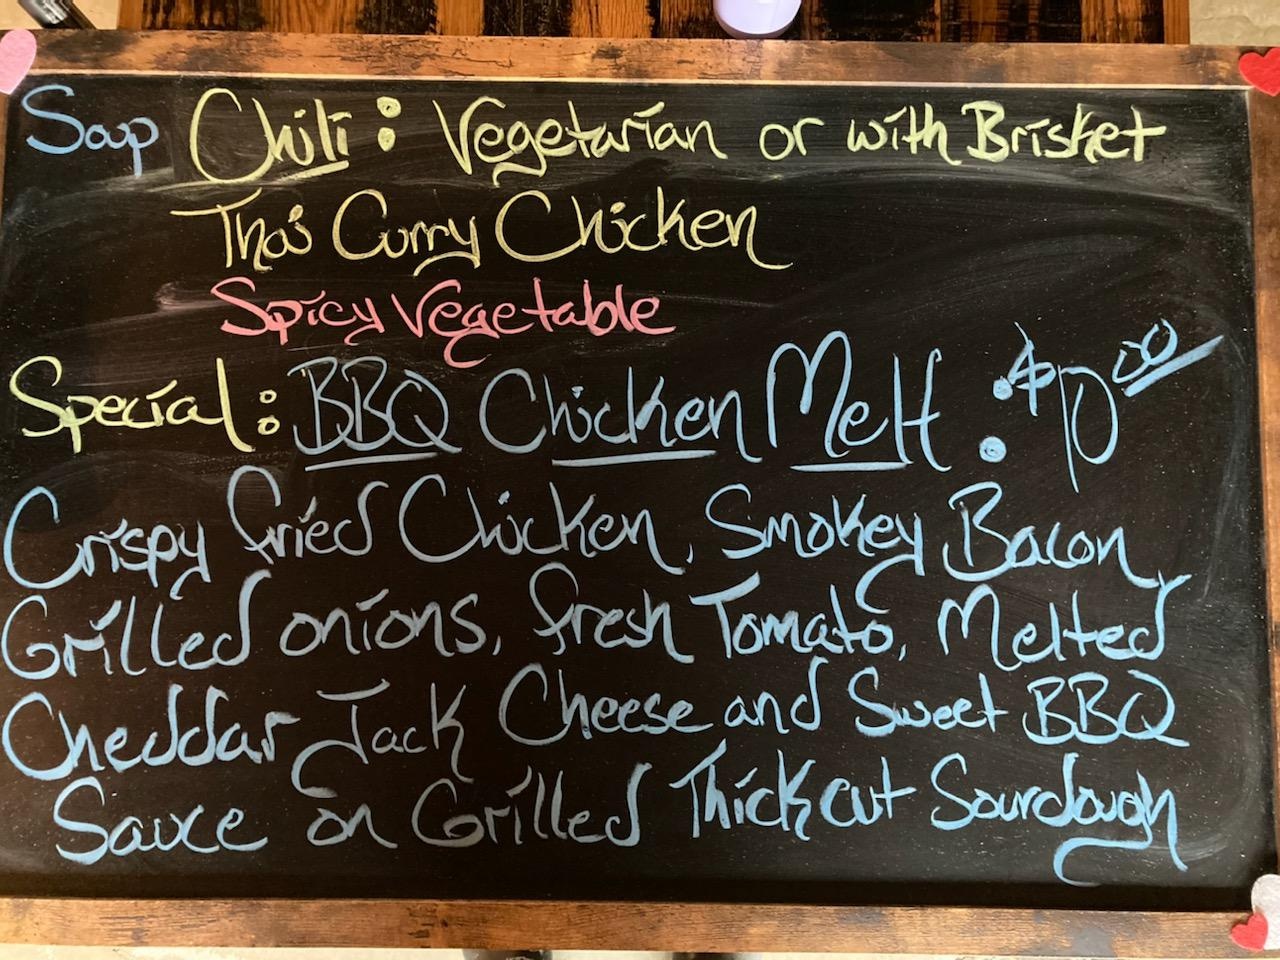 Soup Chili: Vegetarian or with Brisket
Thai Curry Chicken
Spicy Vegetable
Special: BBQ Chicken Melt: $10.00
Crispy fried Chicken, Smokey Bacon,
Grilled onions, fresh Tomato, Melted
Cheddar Jack Cheese and Sweet BBQ
Sauce on Grilled Thick cut Sourdough